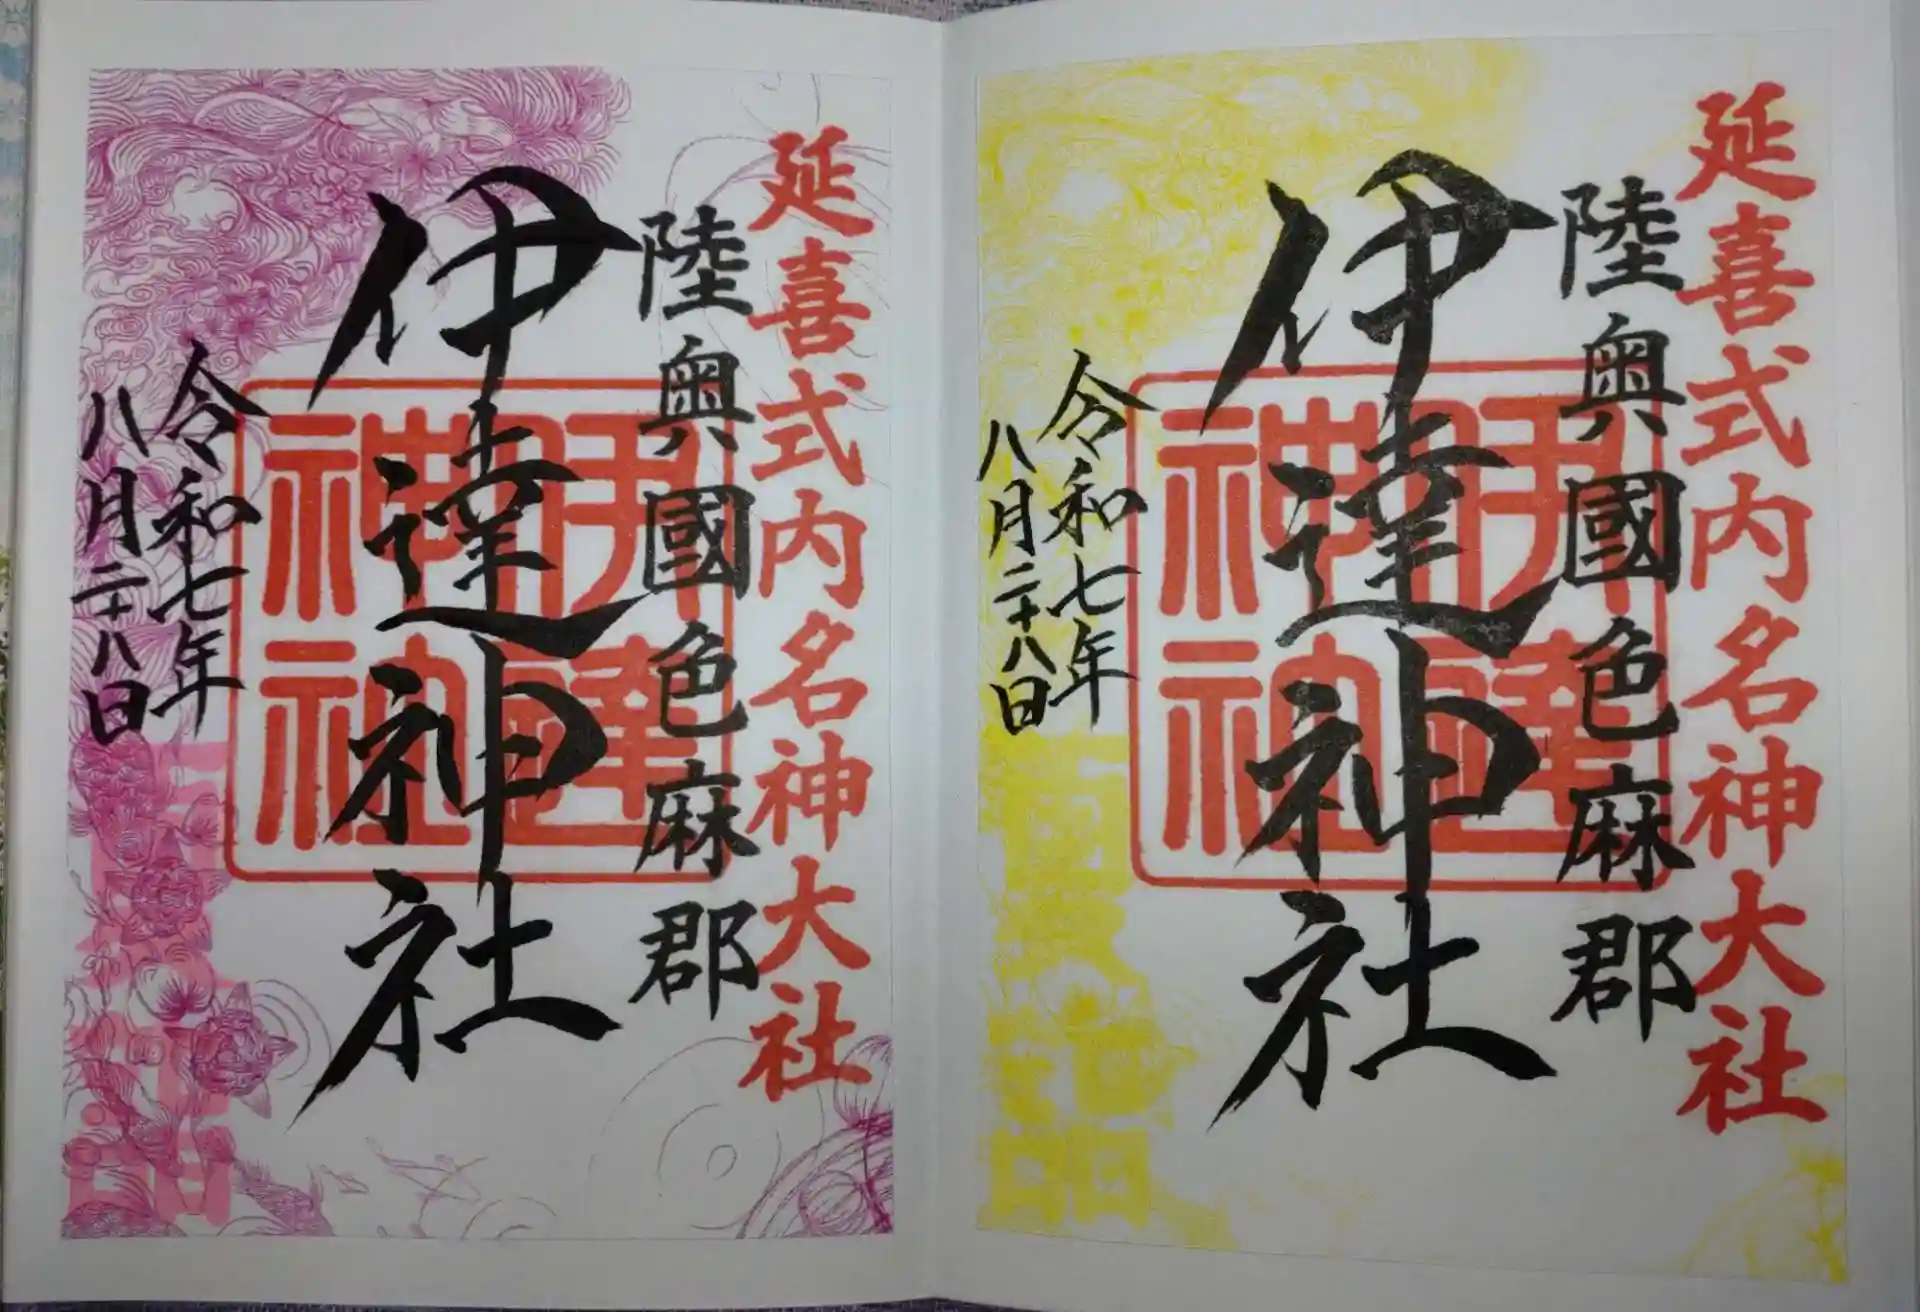 延喜式内名神大社
陸奥國色麻郡
伊達神社
伊達
神社
令和七年
八月二十八日
延喜式内名神大社
陸奥國色麻郡
伊達神社
伊達
神社
令和七年
八月二十八日